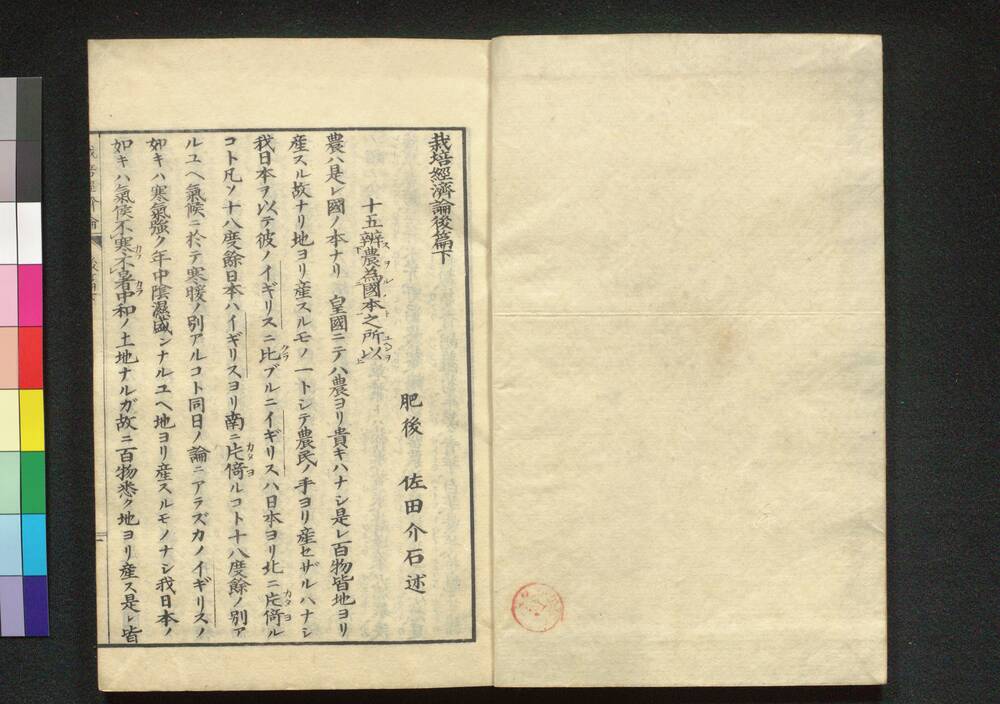 栽培經濟論後篇下
肥後 佐田介石述
十五辨農為國本之所以
農ハ是レ國ノ本ナリ 皇國ニテハ農ヨリ貴キハナシ是レ百物皆地ヨリ
産スル故ナリ地ヨリ産スルモノ一トシテ農民ノ手ヨリ産セザルハナシ
我日本ヲ以テ彼ノイギリスニ比ブルニイギリスハ日本ヨリ北ニ片倚ル
コト凡ソ十八度餘日本ハイギリスヨリ南ニ片倚ルコト十八度餘ノ別ア
ルユヘ氣候ニ於テ寒暖ノ別アルコト同日ノ論ニアラズカノイギリスノ
如キハ寒氣強ク年中陰濕盛ンナルユヘ地ヨリ産スルモノナシ我日本ノ
如キハ氣候不寒不暑中和ノ土地ナルガ故ニ百物悉ク地ヨリ産ス是レ皆